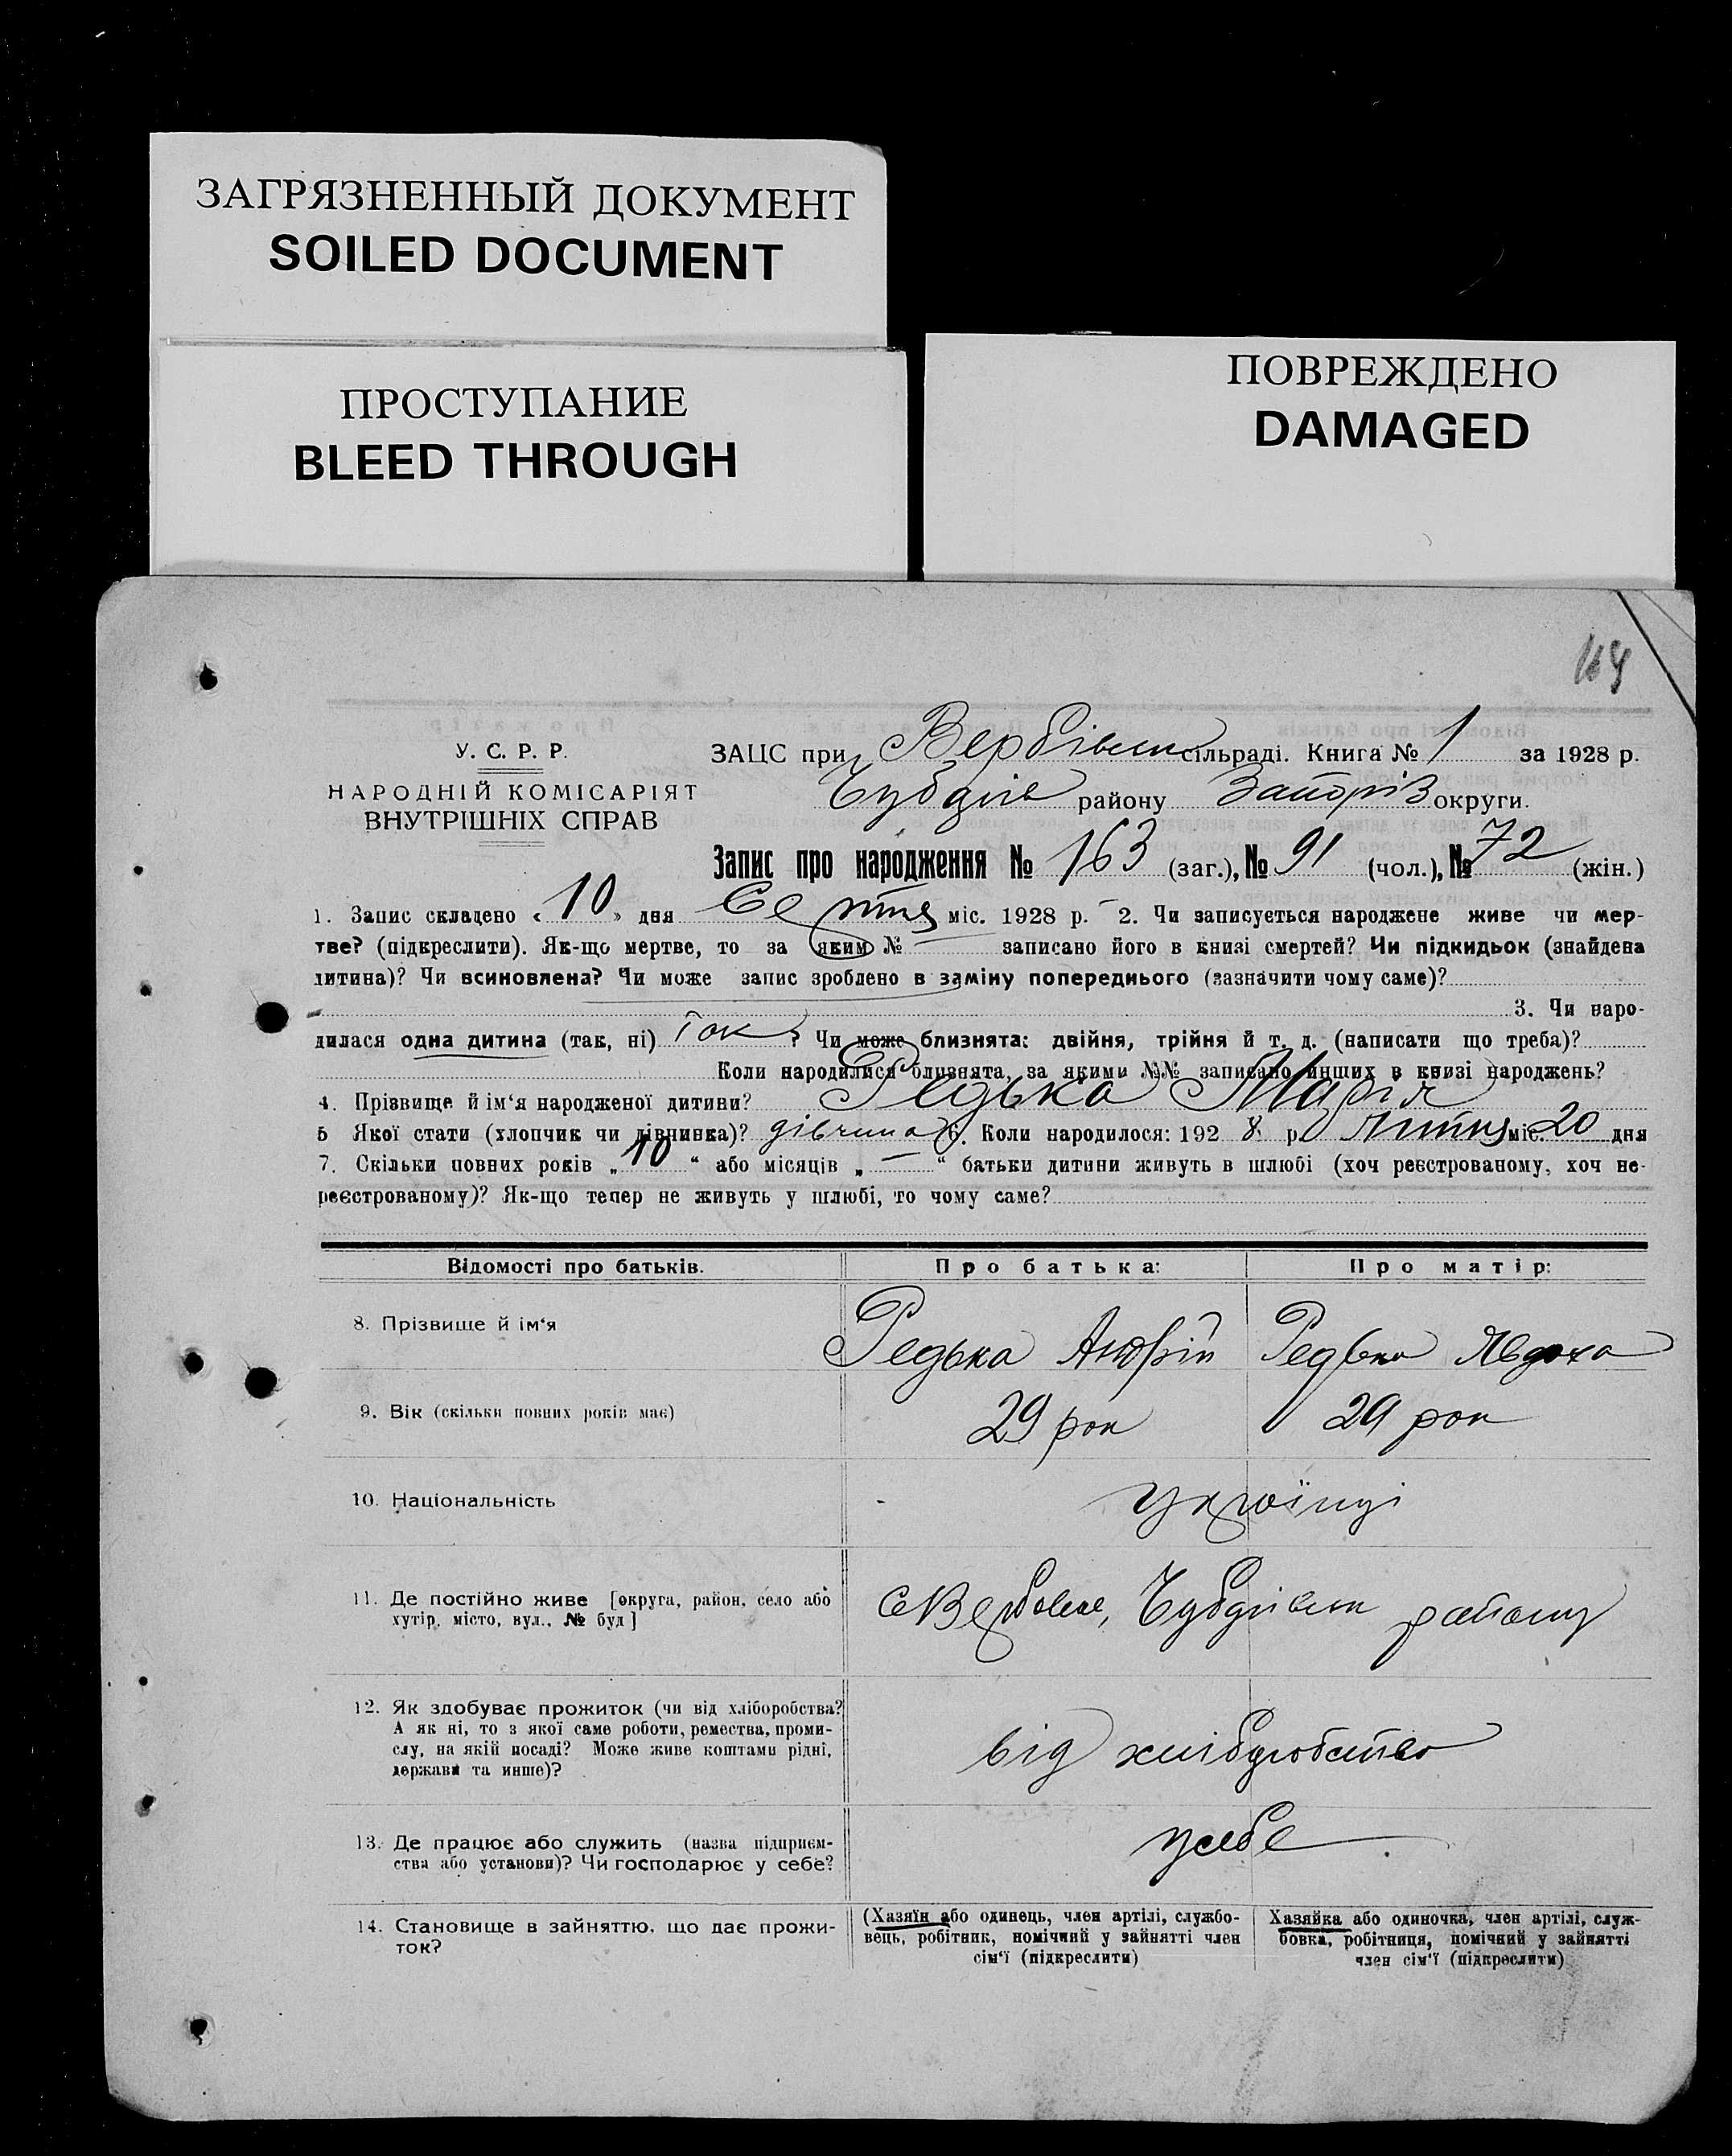 ЗАГРЯЗНЕННЫЙ ДОКУМЕНТ
SOILED DOCUMENT
ПРОСТУПАНИЕ
BLEED THROUGH
ПОВРЕЖДЕНО
DAMAGED
У. С. Р. Р.
НАРОДНІЙ КОМІСАРІЯТ
ВНУТРІШНІХ СПРАВ
ЗАЦС при сільраді. Книга № 1 за 1928 р.
району округи.
Запис про народження № 163 (заг.), № 91 (чол.), № 72 (жін.)
1. Запис складено « 10 » дня міс. 1928 р. 2. Чи записується народжене живе чи мер-
тве? (підкреслити). Як-що мертве, то за яким № записано його в книзі смертей? Чи підкидьок (знайдена
дитина)? Чи всиновлена? Чи може запис зроблено в заміну попереднього (зазначити чому саме)?
3. Чи наро-
дилася одна дитина (так, ні) Так ? Чи може близнята: двійня, трійня й т. д. (написати що треба)?
Коли народилися близнята, за якими №№ записано инших в книзі народжень?
4. Прізвище й ім'я народженої дитини? Редька Марія
5 Якої стати (хлопчик чи дівчинка)? дівчина 6. Коли народилося: 1928 р. міс. 20 дня
7. Скільки повних років „ 10 “ або місяців „ — “ батьки дитини живуть в шлюбі (хоч реєстрованому, хоч не-
реєстрованому)? Як-що тепер не живуть у шлюбі, то чому саме?
Відомості про батьків. Про батька: Про матір:
8. Прізвище й ім'я Редька Андрій Редька Явдоха
9. Вік (скільки повних років має) 29 рок 29 рок
10. Національність українці
11. Де постійно живе [округа, район, село або
хутір, місто, вул., № буд] району
12. Як здобуває прожиток (чи від хліборобства?
А як ні, то з якої саме роботи, ремества, проми-
слу, на якій посаді? Може живе коштами рідні,
держави та инше)?
від хліборобства
13. Де працює або служить (назва підприєм-
ства або установи)? Чи господарює у себе?
у себе
14. Становище в зайняттю, що дає прожи-
ток?
(Хазяїн або одинець, член артілі, службо-
вець, робітник, помічний у зайнятті член
сім'ї (підкреслити)
Хазяйка або одиночка, член артілі, служ-
бовка, робітниця, помічний у зайнятті
член сім'ї (підкреслити)